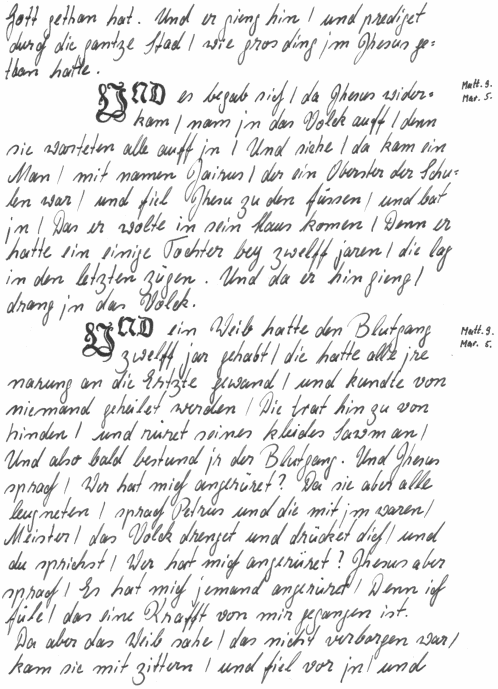 Gott gethan hat. Und er gieng hin / und prediget
durch die gantze Stad / wie gros ding jm Jhesus ge=
than hatte.
UND es begab sich / da Jhesus wider=
Matt. 9.
kam / nam jn das Volck auff / denn
Mar. 5.
sie warteten alle auff jn / Und siehe / da kam ein
Man / mit namen Jairus / der ein Oberster der Schu=
len war / und fiel Jhesu zu den füssen / und bat
jn / Das er wolte in sein Haus komen / Denn er
hatte ein einige Tochter bey zwelff jaren / die lag
in den letzten zügen. Und da er hin gieng /
drang jn das Volck.
UND ein Weib hatte den Blutgang
Matt. 9.
zwelff jar gehabt / die hatte alle jre
Mar. 5.
narung an die Ertzte gewand / und kundte von
niemand geheilet werden / Die trat hin zu von
hinden / und rüret seines kleides Sawm an /
Und also bald bestund jr der Blutgang. Und Jhesus
sprach / Wer hat mich angerüret? Da sie aber alle
leugneten / sprach Petrus und die mit jm waren /
Meister / das Volck drenget und drücket dich / und
du sprichst / Wer hat mich angerüret? Jhesus aber
sprach / Es hat mich jemand angerüret / Denn ich
füle / das eine Krafft von mir gegangen ist.
Da aber das Weib sahe / das nicht verborgen war /
kam sie mit zittern / und fiel vor jn / und